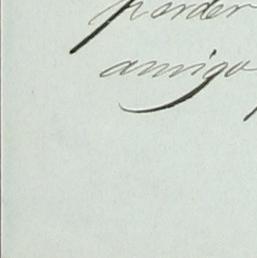 perder
amigo